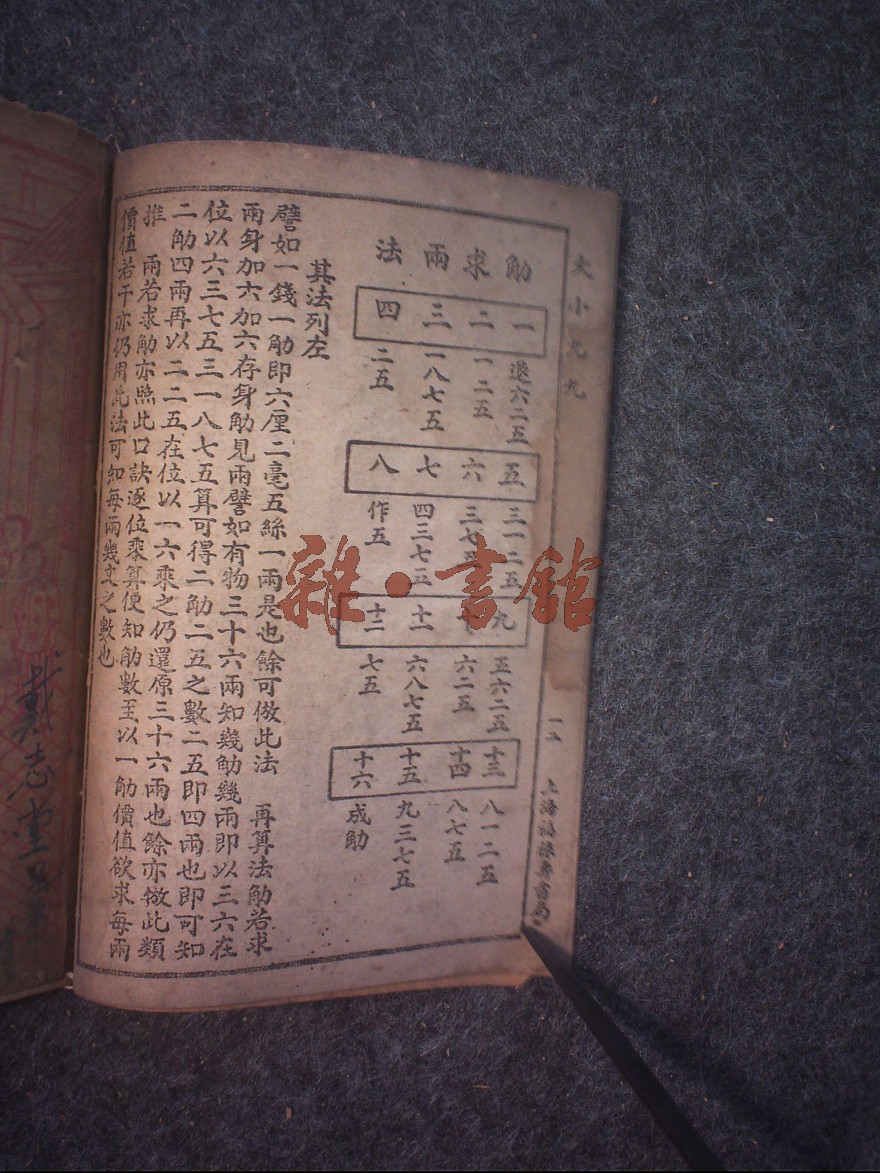 大小九九
一二 上海福祿壽書局
觔求兩法
一 退六二五
二 一二五
三 一八七五
四 二五
五 三一二五
六 三七五
七 四三七五
八 作五
九 五六二五
十 六二五
十一 六八七五
十二 七五
十三 八一二五
十四 八七五
十五 九三七五
十六 成觔
其法列左
譬如一錢一觔即六厘二毫五絲一兩是也餘可倣此法 再算法觔若求
兩身加六加六存身觔見兩譬如有物三十六兩知幾觔幾兩即以三六在
位以六三七五三一八七五算可得二觔二五之數二五即四兩也即可知
二觔四兩再以二二五在位以一六乘之仍還原三十六兩也餘亦倣此類
推 兩若求觔亦照此口訣逐位乘算便知觔數至以一觔價值欲求每兩
價值若干亦仍用此法可知每兩幾文之數也
戴志堂
雜·書館